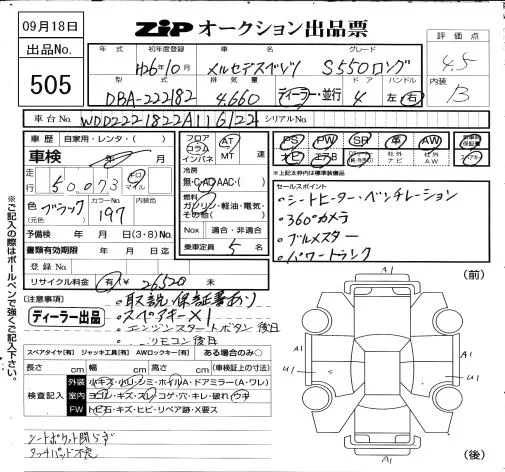 09月18日
出品No.
505
ZiP オークション出品票
評価点
4.5
内装
B
年式
初年度登録
車名
グレード
H26年10月
メルセデスベンツ
S550ロング
型式
排気量
ドア
ハンドル
DBA-222182
4,660
ディーラー・並行
4
左・右
車台No.
WDD2221822A116122
シリアルNo.
車歴
自家用・レンタ・( )
車検
年 月
走行
50,073
マイル
色
(元色)
ブラック
カラーNo.
197
内装色
予備検 年 月 日(3・8)No.
書類有効期限 年 月 日迄
登録No.
リサイクル料金 有(¥ 26520
フロア
コラム
インパネ
AT
MT
速
冷房
無・C・AAC・( )
燃料
ガソリン・軽油・電気・
その他( )
Nox 適合・非適合
乗車定員 5 名
PS PW SR 革 AW
ナビ
社外
ナビ
社外
AW
*上記太枠内は標準装備品
セールスポイント
・シートヒーター・ベンチレーション
・360°カメラ
・ブルメスター
・パワートランク
(注意事項)
ディーラー出品
・取説・保証書あり
・スペアキー×1
・エンジンスタートボタン後日
リモコン後日
スペアタイヤ[有] ジャッキ工具[有] AWロックキー[有] ある場合のみ○
長さ cm 幅 cm 高さ cm (車検証上の寸法)
検査記入
外装 小キズ・小凹・シミ・ホイルA・ドアミラー(A・ワレ)
室内 ヨゴレ・キズ・スレ・コゲ・穴・キレ・破れ・ウキ
FW トビ石・キズ・ヒビ・リペア跡・X要ス
シートポケット開らず
タッチパッド不良
※ご記入の際はボールペンで強くご記入下さい。
(前)
A1
A1
A1
U1
U1
A1
(後)